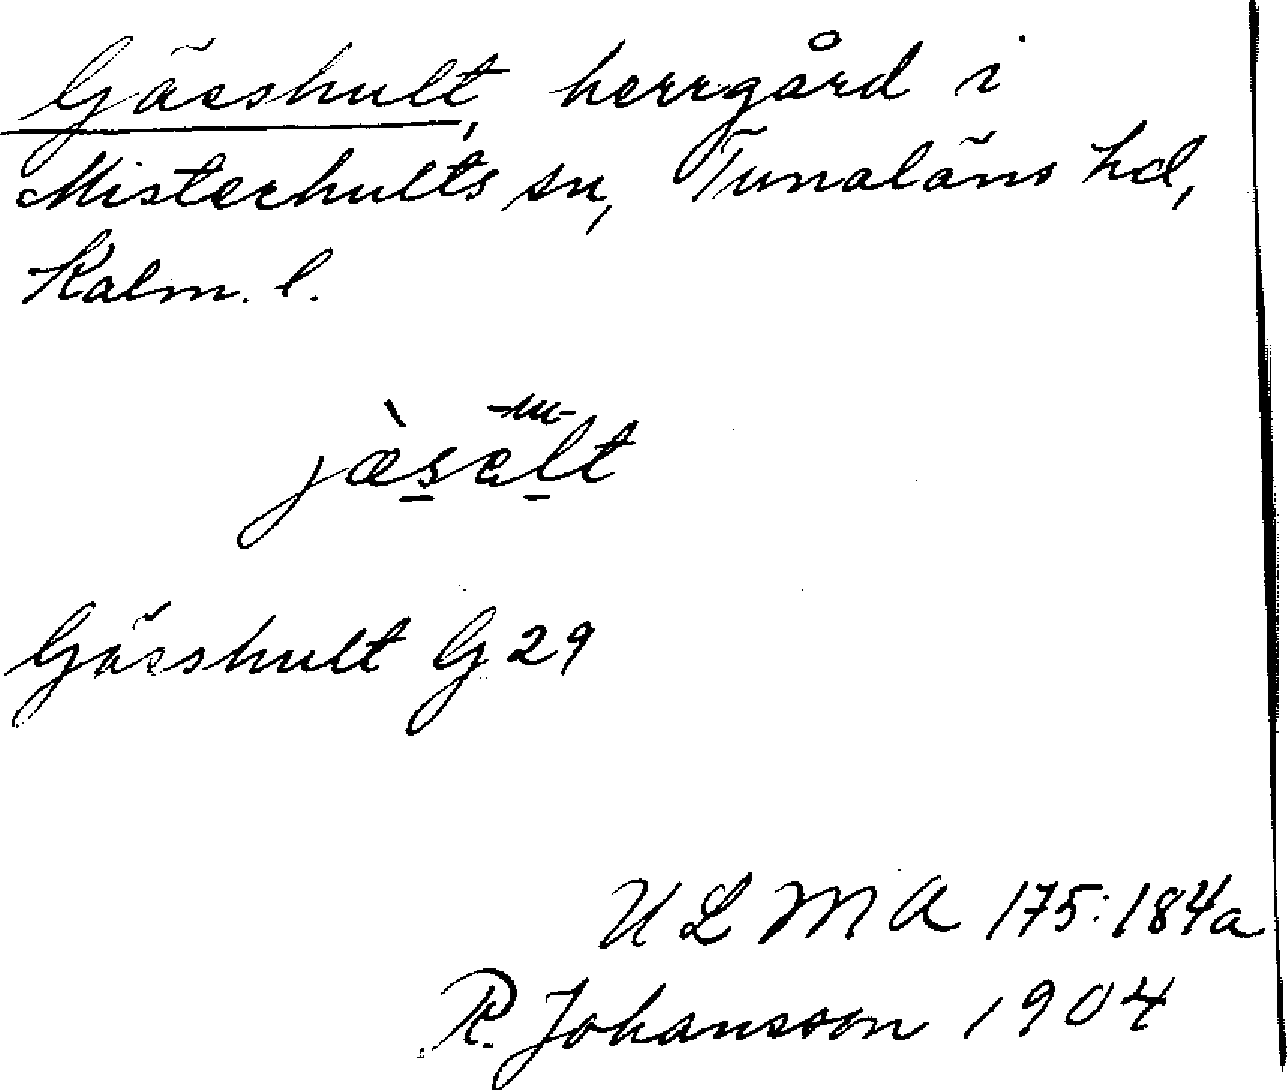 Gässhult, herrgård i
Misterhults sn, Tunaläns hd,
Kalm. l.
Gässhult G 29
ULMA 175:184a
R. Johansson 1904